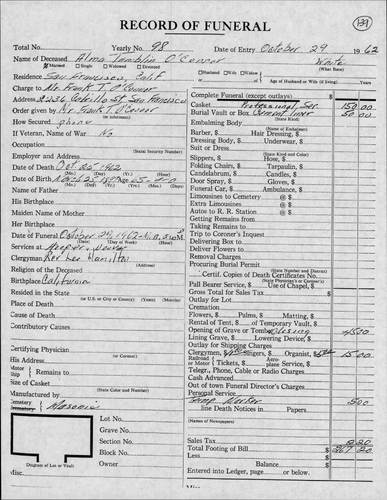 RECORD OF FUNERAL
139
Total No. Yearly No. 98 Date of Entry October 29 1962
Name of Deceased Alma Tomblin O'Connor White
Married Single Widowed Divorced Husband Wife Widow or (What Race)
Residence San Francisco, Calif Age of Husband or Wife (if living)
Charge to Mr. Frank T. O'Connor
Address 2436 Cabrillo St. San Francisco
Order given by Mr. Frank T. O'Connor
How Secured phone
If Veteran, Name of War No
Occupation (Social Security Number)
Employer and Address
Date of Death Oct 25 1962
Date of Birth March 25 Age
(Mo.) (Day) (Year)
Name of Father
His Birthplace
Maiden Name of Mother
Her Birthplace
Date of Funeral October 29, 1962
(Date) (Day of Week) (Hour)
Services at
(Address)
Clergyman Rev Lee Hamilton
Religion of the Deceased
Birthplace California
Resided in the State (or U.S. or City or County) (Years) (Months)
Place of Death
Cause of Death
Contributory Causes
Certifying Physician (or Coroner)
His Address
Motor Ship Remains to
Size of Casket (State Color and Number)
Manufactured by
Cemetery Masonic
Lot No.
Grave No.
Section No.
Block No.
Owner
Diagram of Lot or Vault
Complete Funeral (except outlays) $
Casket Professional Ser. 150 00
Burial Vault or Box Cement liner 50 00
(State Kind)
Embalming Body
(Name of Embalmer)
Barber, $ Hair Dressing, $
Dressing Body, $ Underwear, $
Suit or Dress
(State Kind and Color)
Slippers, $ Hose, $
Folding Chairs, $ Tarpaulin, $
Candelabrum, $ Candles, $
Door Spray, $ Gloves, $
Funeral Car, $ Ambulance, $
Limousines to Cemetery @ $
Extra Limousines @ $
Autos to R. R. Station @ $
Getting Remains from
Taking Remains to
Trip to Coroner's Inquest
Delivering Box to
Deliver Flowers to
Removal Charges
Procuring Burial Permit
(State Number and District)
Certif. Copies of Death Certificates No.
(State Physician's or Coroner's)
Pall Bearer Service, $ Use of Chapel, $
Gross Total for Sales Tax $
Outlay for Lot
Cremation
Flowers, $ Palms, $ Matting, $
Rental of Tent, $ of Temporary Vault, $
Opening of Grave or Tomb 45 00
Lining Grave, $ Lowering Device, $
Outlay for Shipping Charges
Clergymen, $ Singers, $ Organist, $ 15 00
Railroad or Motor Tickets, $ Aeroplane Service, $
Telegr., Phone, Cable or Radio Charges $
Cash Advanced
Out of town Funeral Director's Charges
Personal Service
Temp Marker 5 00
line Death Notices in Papers
(Names of Newspapers)
Sales Tax 2 20
Total Footing of Bill $ 267 20
Less $
Balance $
Entered into Ledger, page or below.